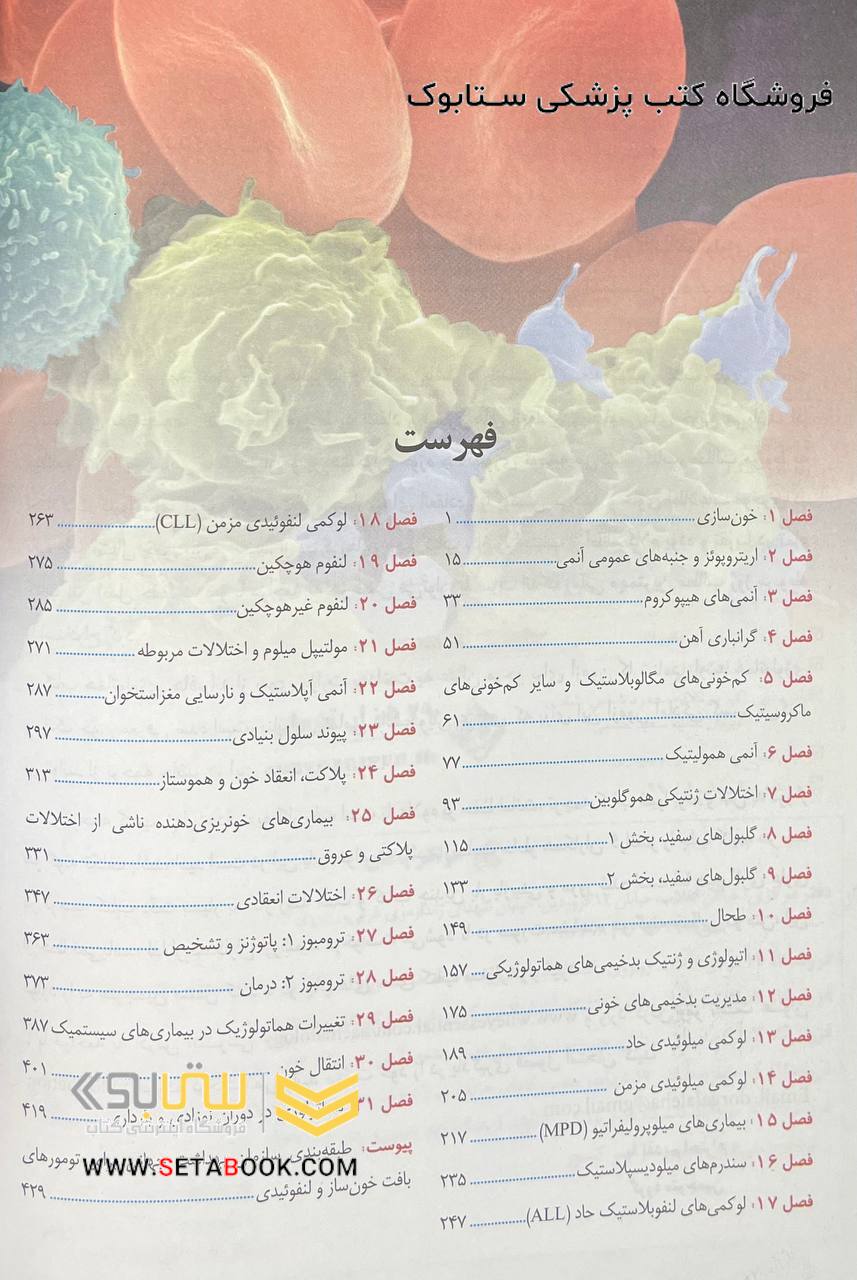 فروشگاه کتب پزشکی ستابوک
فهرست
فصل ۱: خون‌سازی ۱
فصل ۲: اریتروپوئز و جنبه‌های عمومی آنمی ۱۵
فصل ۳: آنمی‌های هیپوکروم ۳۳
فصل ۴: گرانباری آهن ۵۱
فصل ۵: کم‌خونی‌های مگالوبلاستیک و سایر کم‌خونی‌های
ماکروسیتیک ۶۱
فصل ۶: آنمی همولیتیک ۷۷
فصل ۷: اختلالات ژنتیکی هموگلوبین ۹۳
فصل ۸: گلبول‌های سفید، بخش ۱ ۱۱۵
فصل ۹: گلبول‌های سفید، بخش ۲ ۱۳۳
فصل ۱۰: طحال ۱۴۹
فصل ۱۱: اتیولوژی و ژنتیک بدخیمی‌های هماتولوژیکی ۱۵۷
فصل ۱۲: مدیریت بدخیمی‌های خونی ۱۷۵
فصل ۱۳: لوکمی میلوئیدی حاد ۱۸۹
فصل ۱۴: لوکمی میلوئیدی مزمن ۲۰۵
فصل ۱۵: بیماری‌های میلوپرولیفراتیو (MPD) ۲۱۷
فصل ۱۶: سندرم‌های میلودیسپلاستیک ۲۳۵
فصل ۱۷: لوکمی‌های لنفوبلاستیک حاد (ALL) ۲۴۷
فصل ۱۸: لوکمی لنفوئیدی مزمن (CLL) ۲۶۳
فصل ۱۹: لنفوم هوچکین ۲۷۵
فصل ۲۰: لنفوم غیرهوچکین ۲۸۵
فصل ۲۱: مولتیپل میلوم و اختلالات مربوطه ۲۷۱
فصل ۲۲: آنمی آپلاستیک و نارسایی مغزاستخوان ۲۸۷
فصل ۲۳: پیوند سلول بنیادی ۲۹۷
فصل ۲۴: پلاکت، انعقاد خون و هموستاز ۳۱۳
فصل ۲۵: بیماری‌های خونریزی‌دهنده ناشی از اختلالات
پلاکتی و عروق ۳۳۱
فصل ۲۶: اختلالات انعقادی ۳۴۷
فصل ۲۷: ترومبوز ۱: پاتوژنز و تشخیص ۳۶۳
فصل ۲۸: ترومبوز ۲: درمان ۳۷۳
فصل ۲۹: تغییرات هماتولوژیک در بیماری‌های سیستمیک ۳۸۷
فصل ۳۰: انتقال خون ۴۰۱
فصل ۳۱: در دوران نوزادی و ۴۱۹
پیوست: طبقه‌بندی سازمان بهداشت جهانی برای تومورهای
بافت خون‌ساز و لنفوئیدی ۴۲۹
ستابوک
فروشگاه اینترنتی کتاب
WWW.SETABOOK.COM